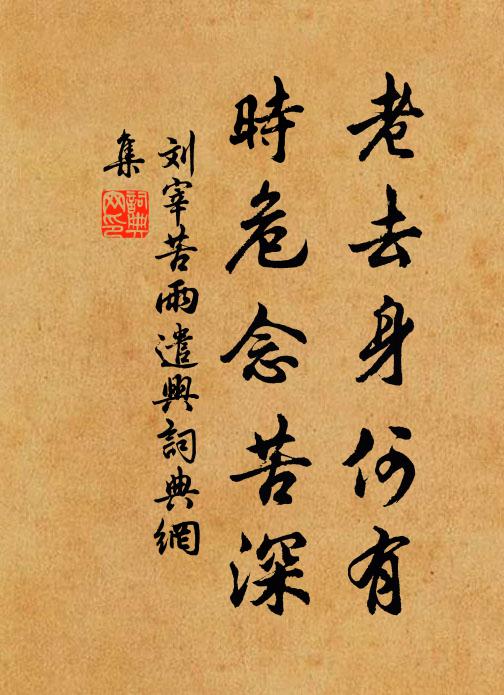 老去身何有
時危念苦深
刘宰苦雨遣興詞典網
集
詞典网印